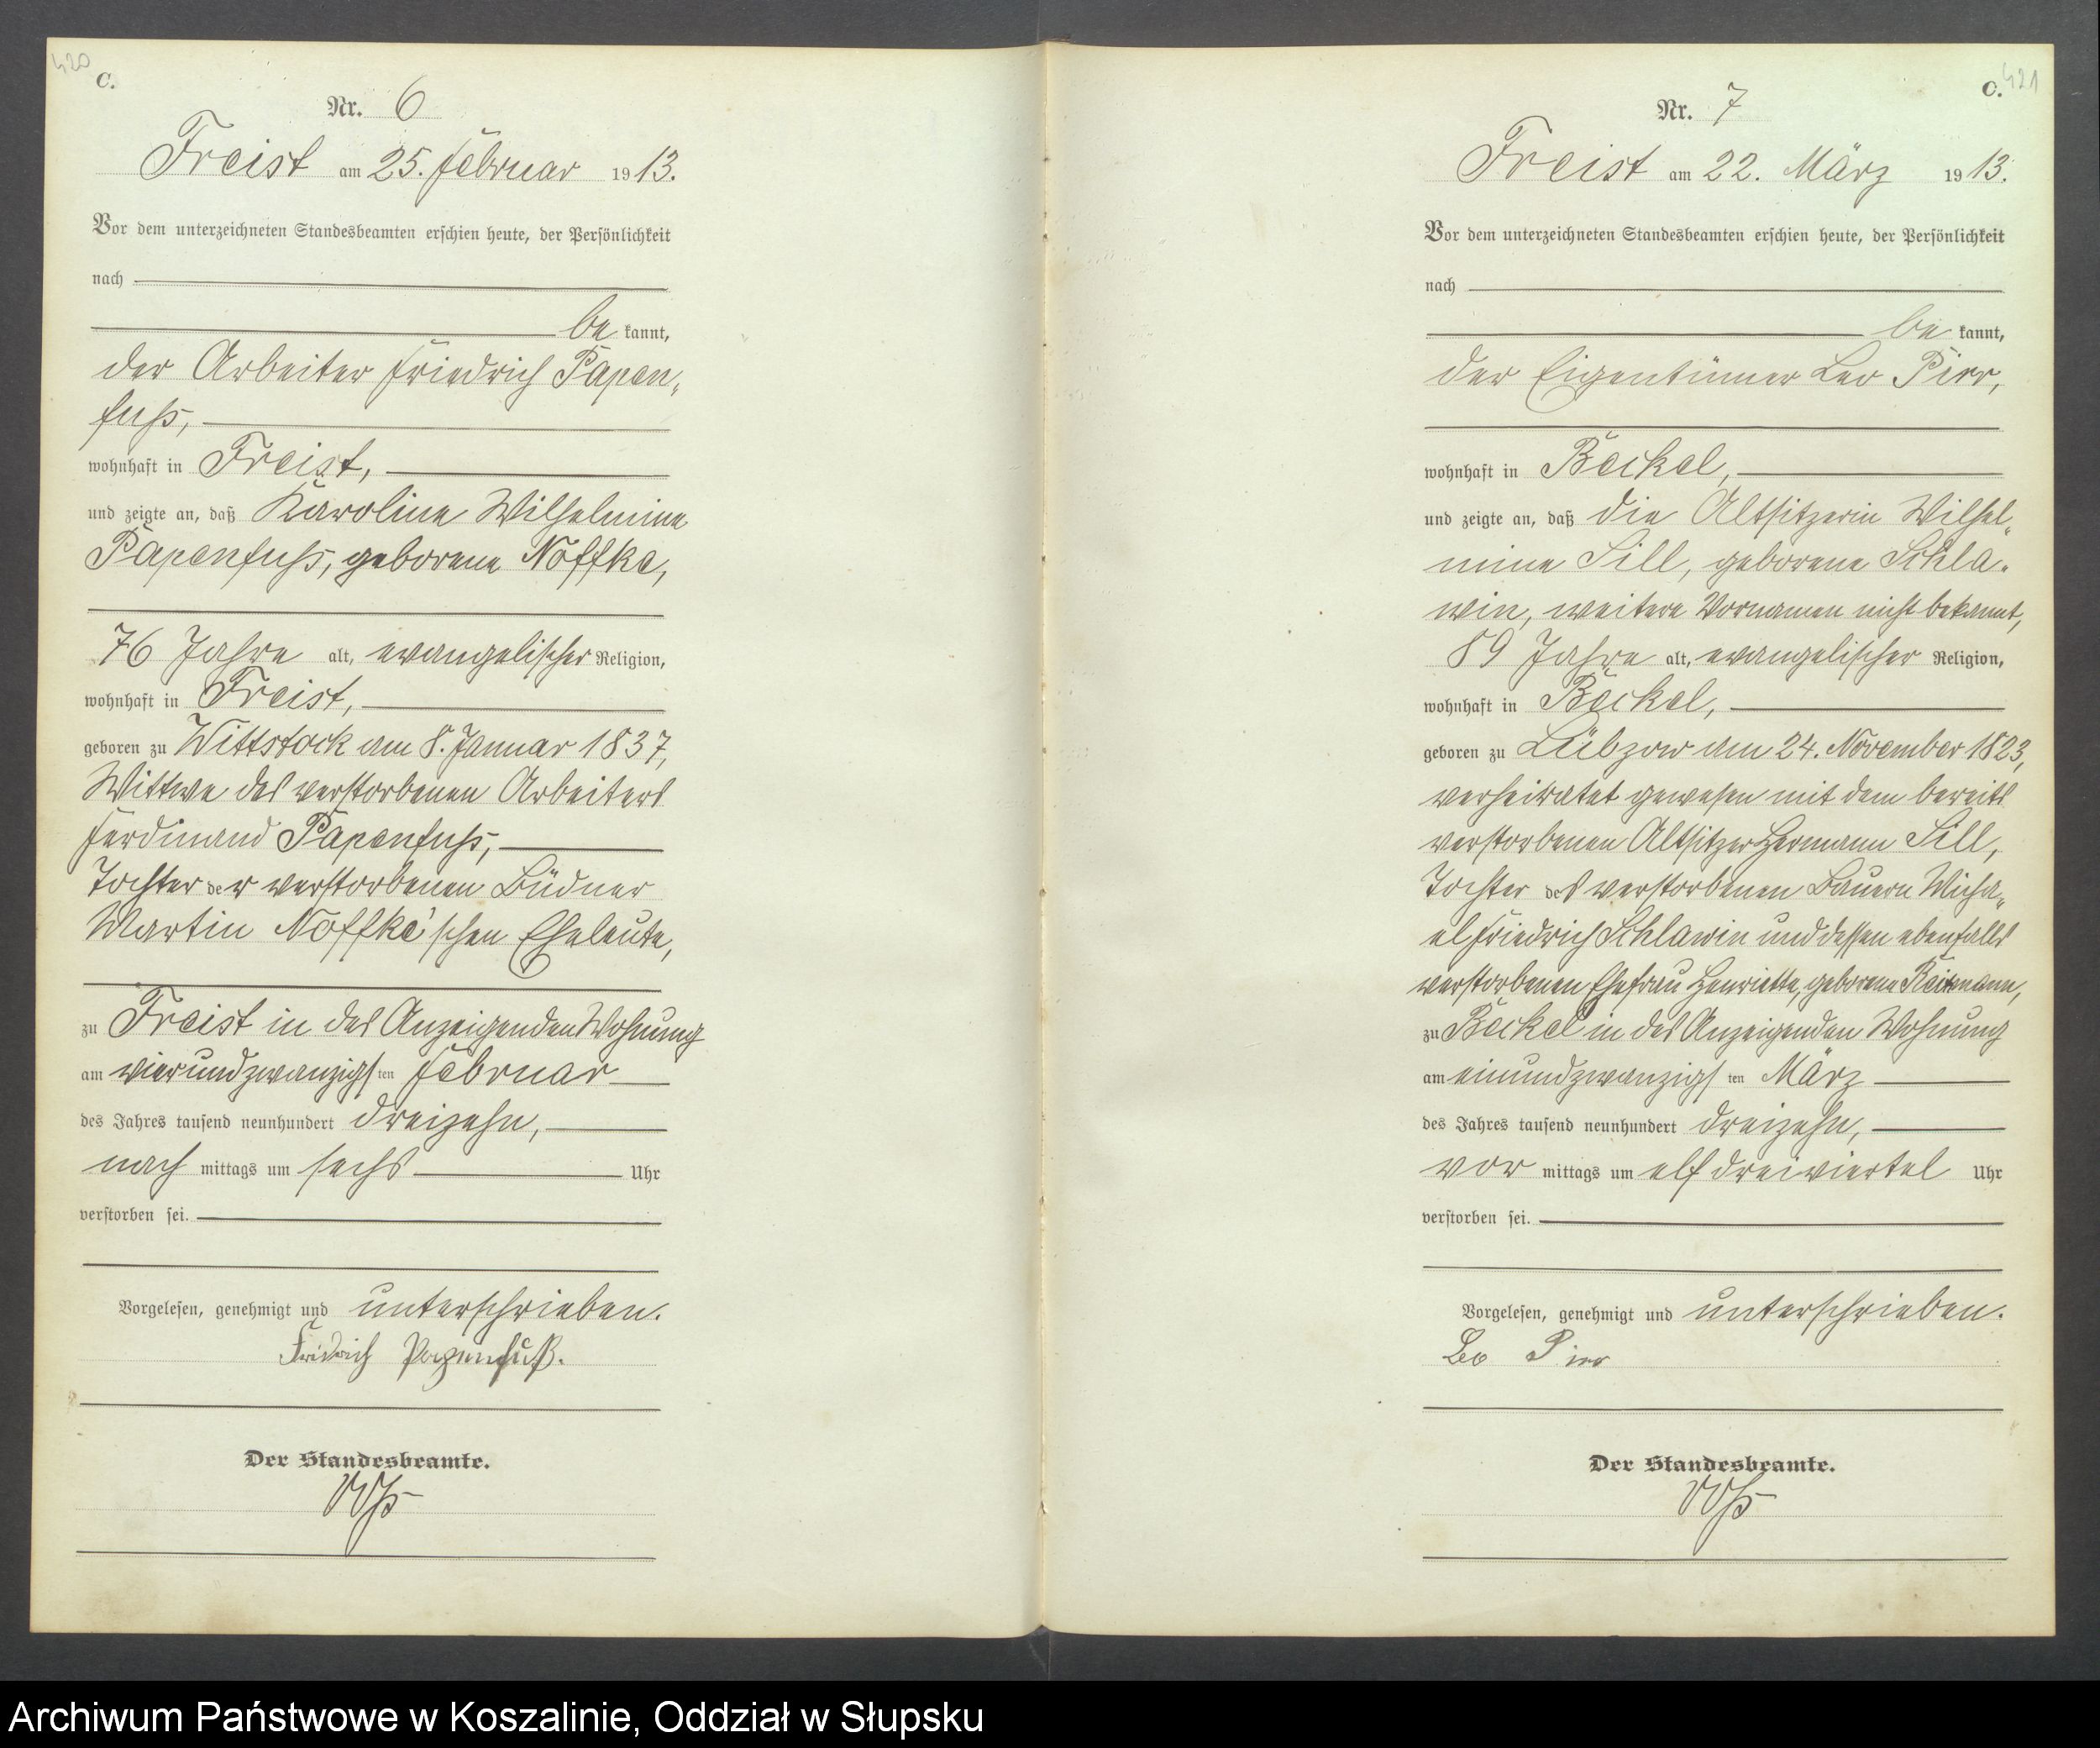 420
C.
Nr. 6
Freist am 25. Februar 1913.
Vor dem unterzeichneten Standesbeamten erschien heute, der Persönlichkeit
nach
be kannt,
der Arbeiter Friedrich Papen„
fuss,
wohnhaft in Freist,
und zeigte an, daß Karoline Wilhelmine
Papenfuss, geborene Noffke,
76 Jahre alt, evangelischer Religion,
wohnhaft in Freist,
geboren zu Wittstock am 8. Januar 1837,
Wittwe des verstorbenen Arbeiters
Ferdinand Papenfuss,
Tochter der verstorbenen Büdner
Martin Noffke'schen Eheleute,
zu Freist in des Anzeigenden Wohnung
am vierundzwanzigsten Februar
des Jahres tausend neunhundert dreizehn,
nach mittags um sechs Uhr
verstorben sei.
Vorgelesen, genehmigt und unterschrieben.
Fridrich Papenfuß.
Der Standesbeamte.
421
C.
Nr. 7
Freist am 22. März 1913.
Vor dem unterzeichneten Standesbeamten erschien heute, der Persönlichkeit
nach
be kannt,
der Eigentümer Leo Pirr,
wohnhaft in Beckel,
und zeigte an, daß die Altsitzerin Wilhel„
mine Sill, geborene Schla„
win, weitere Vornamen nicht bekannt,
89 Jahre alt, evangelischer Religion,
wohnhaft in Beckel,
geboren zu Lübzow am 24. November 1823,
verheiratet gewesen mit dem bereits
verstorbenen Altsitzer Hermann Sill,
Tochter des verstorbenen Bauern Micha„
el Friedrich Schlawin und dessen ebenfalls
verstorbenen Ehefrau Henriette, geborene
zu Beckel in des Anzeigenden Wohnung
am einundzwanzigsten März
des Jahres tausend neunhundert dreizehn,
vor mittags um elf dreiviertel Uhr
verstorben sei.
Vorgelesen, genehmigt und unterschrieben.
Leo Pirr
Der Standesbeamte.
Archiwum Państwowe w Koszalinie, Oddział w Słupsku